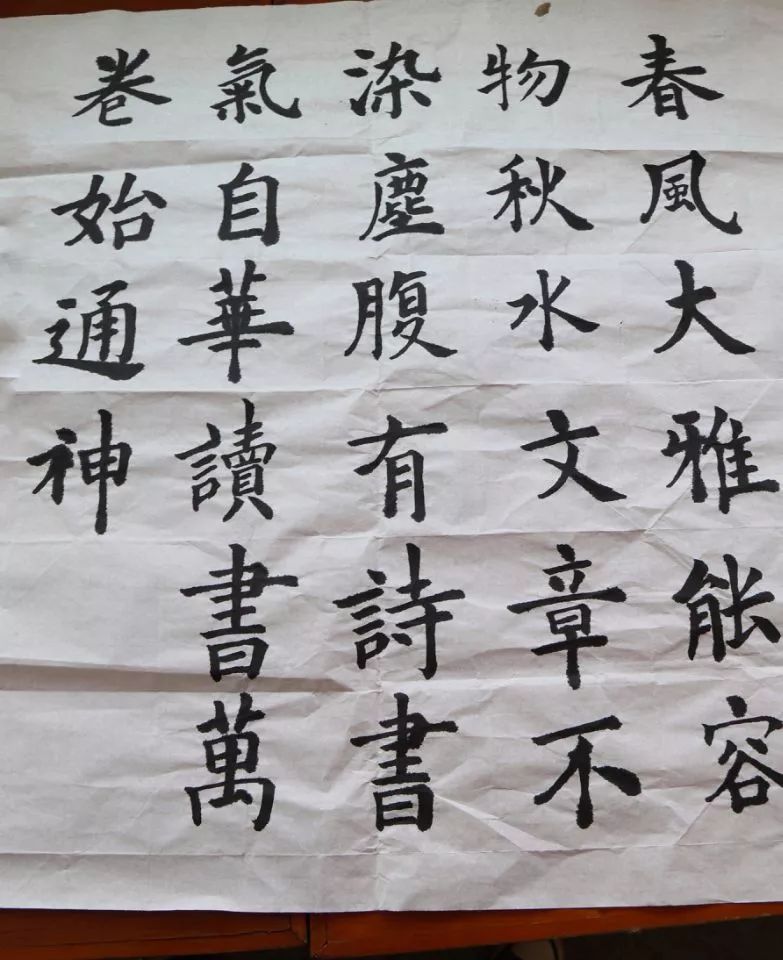 春風大雅能容
物秋水文章不
染塵腹有詩書
氣自華讀書萬
卷始通神